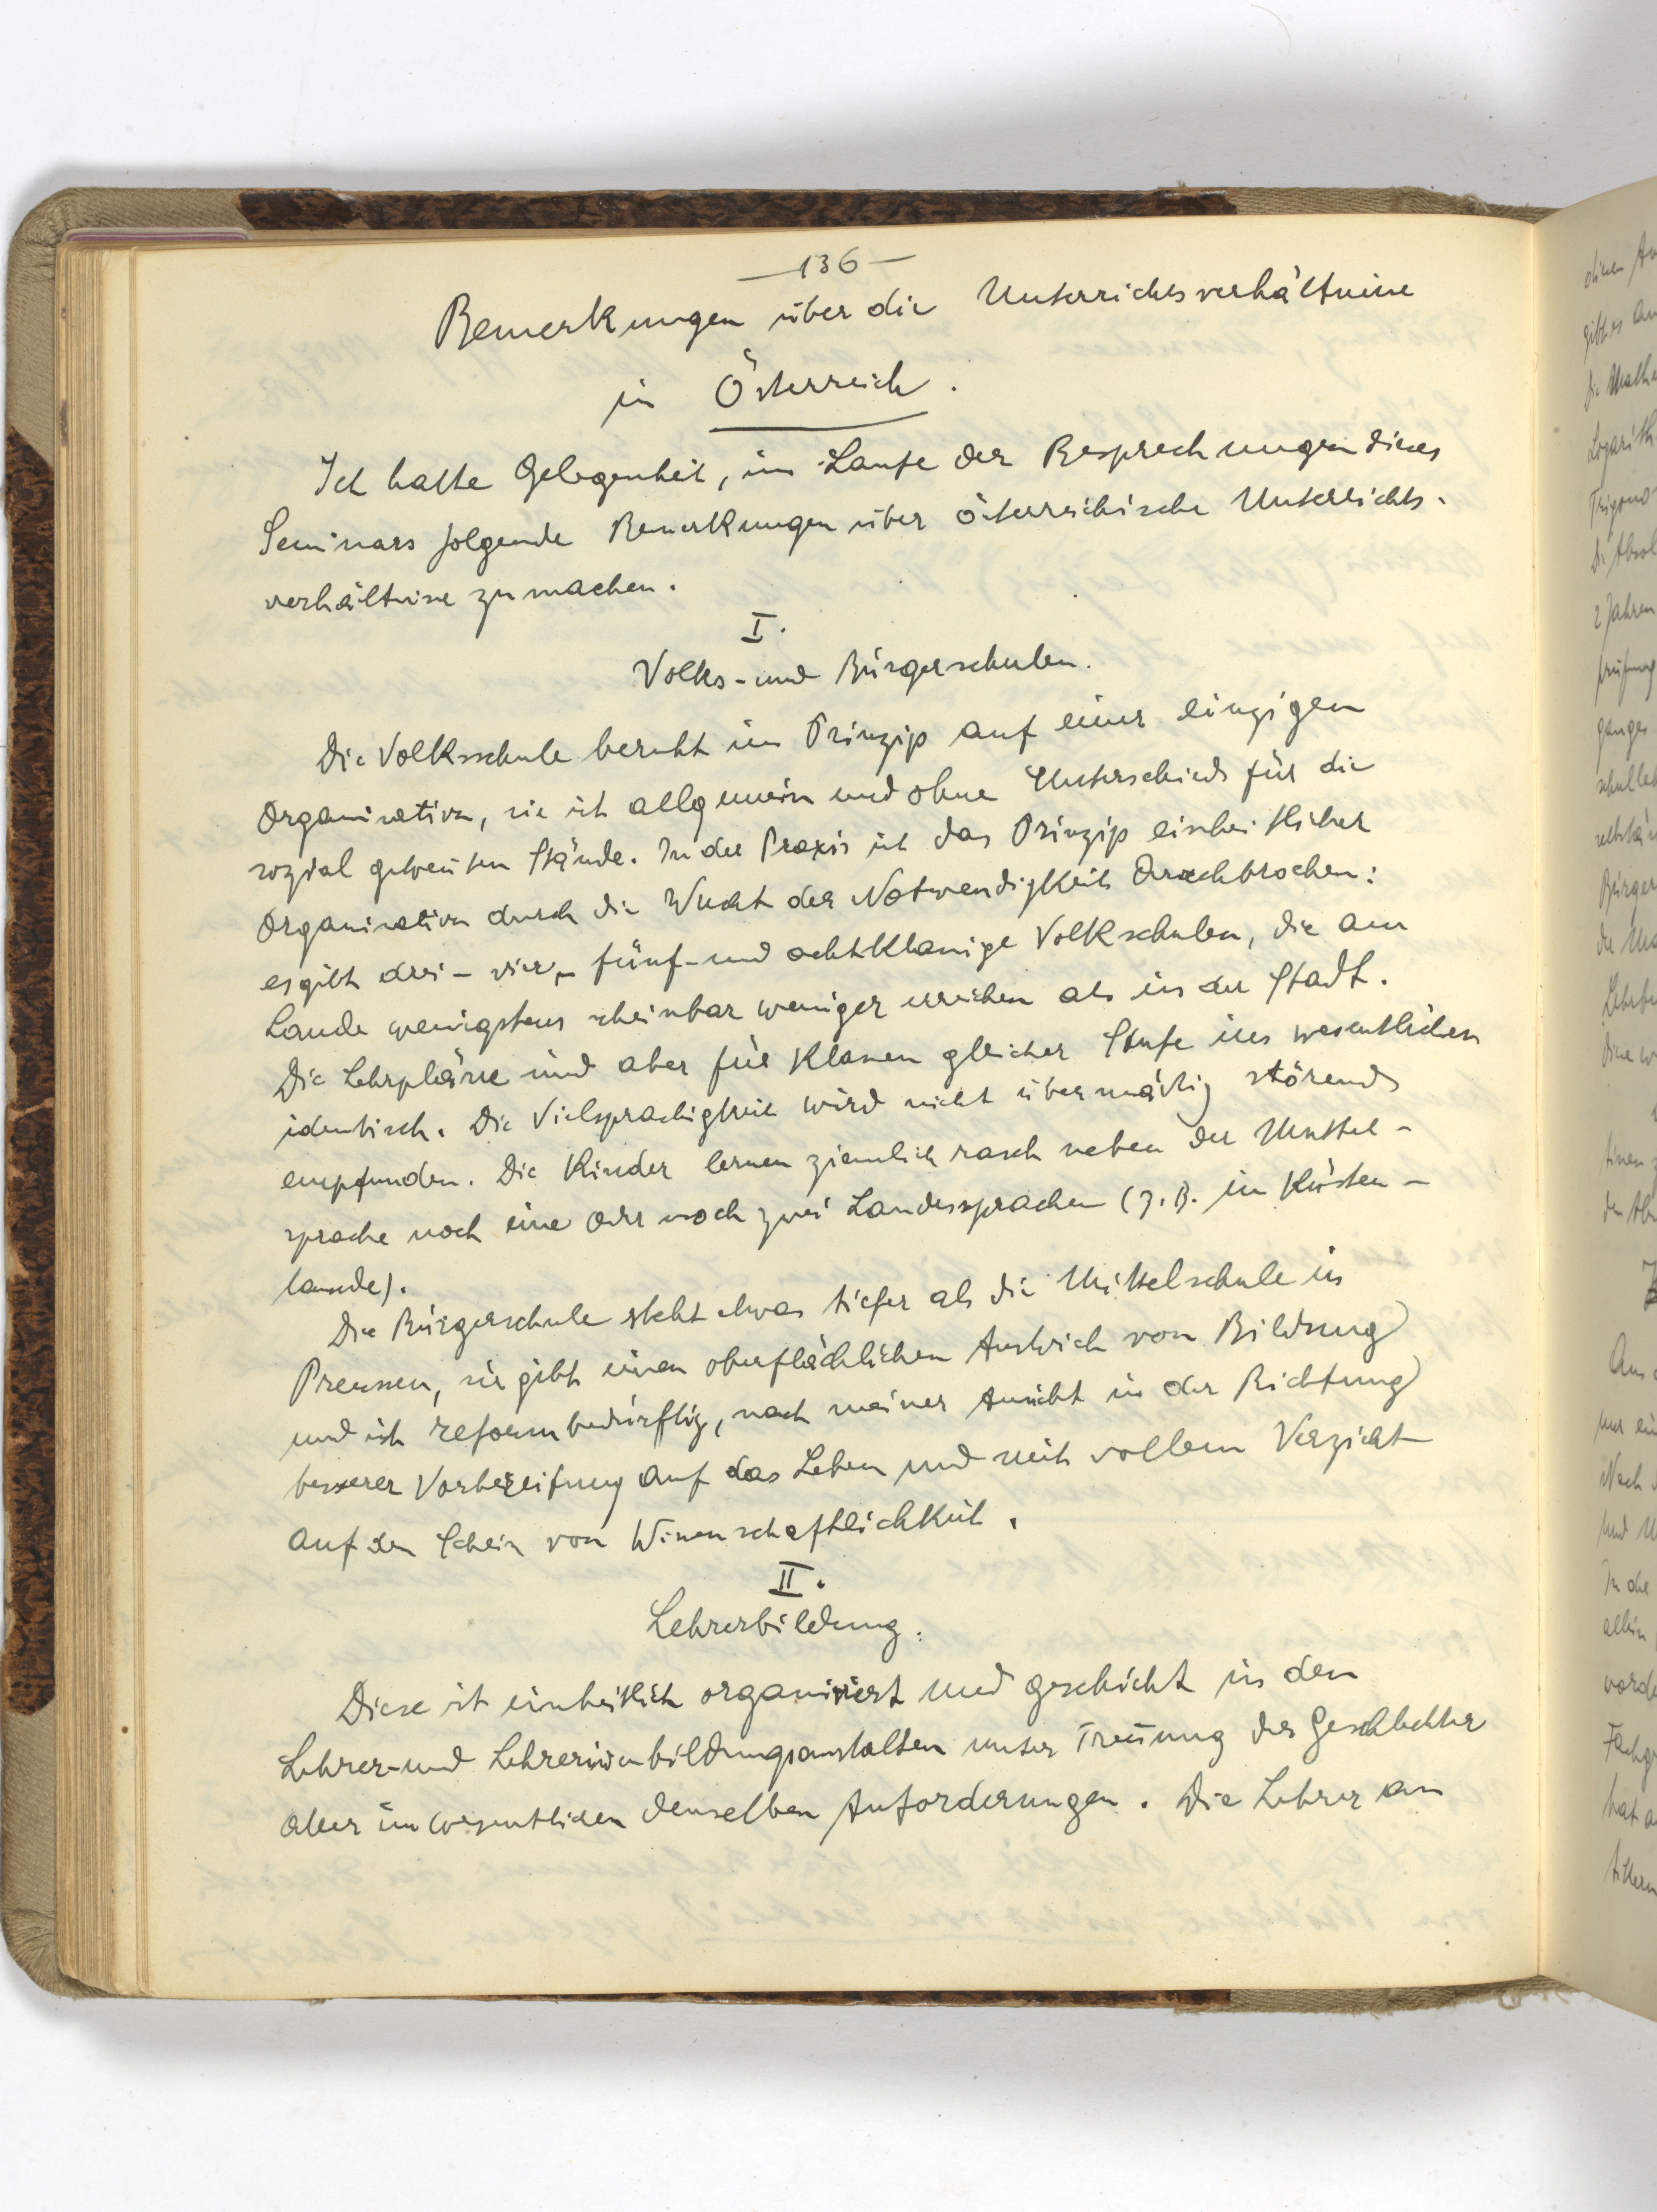 —136—
Bemerkungen über die Unterrichtsverhältnisse
in Österreich.
Ich hatte Gelegenheit, im Laufe der Besprechungen dieses
Seminars folgende Bemerkungen über österreichische Unterrichts-
verhältnisse zu machen.
I.
Volks- und Bürgerschulen.
Die Volksschule beruht im Prinzip auf einer einzigen
Organisation, sie ist allgemein und ohne Unterschied für die
sozial getrennten Stände. In der Praxis ist das Prinzip einheitlicher
Organisation durch die Wucht der Notwendigkeit durchbrochen:
es gibt drei- vier-, fünf- und achtklassige Volkschulen, die am
Lande wenigstens scheinbar weniger erreichen als in der Stadt.
Die Lehrpläne sind aber für Klassen gleicher Stufe im wesentlichen
identisch. Die Vielsprachigkeit wird nicht übermäßig störend
empfunden. Die Kinder lernen ziemlich rasch neben der Mutter-
sprache noch eine oder noch zwei Landessprachen (z.B. im Küsten-
lande).
Die Bürgerschule steht etwas tiefer als die Mittelschule in
Preussen, sie gibt einen oberflächlichen Anstrich von Bildung
und ist reformbedürftig, nach meiner Ansicht in der Richtung
besserer Vorbereitung auf das Leben und mit vollem Verzicht
auf den Schein von Wissenschaftlichkeit.
II.
Lehrerbildung.
Diese ist einheitlich organisiert und geschieht in den
Lehrer- und Lehrerinnenbildungsanstalten unter Trennung der Geschlechter
aber im wesentlichen denselben Anforderungen. Die Lehrer an